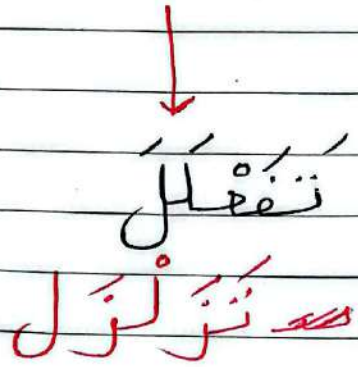 تَفَعْلَلَ
تَزَلْزَل